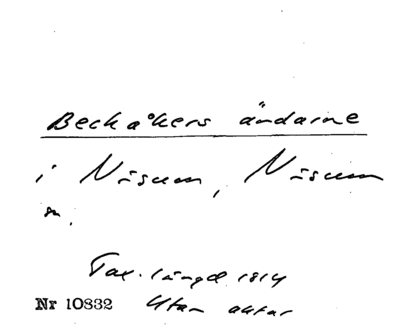 Beckåkers ändarne
i Näsum, Näsum
sn.
Tax. längd 1814
Nr 10832 Utan aktar